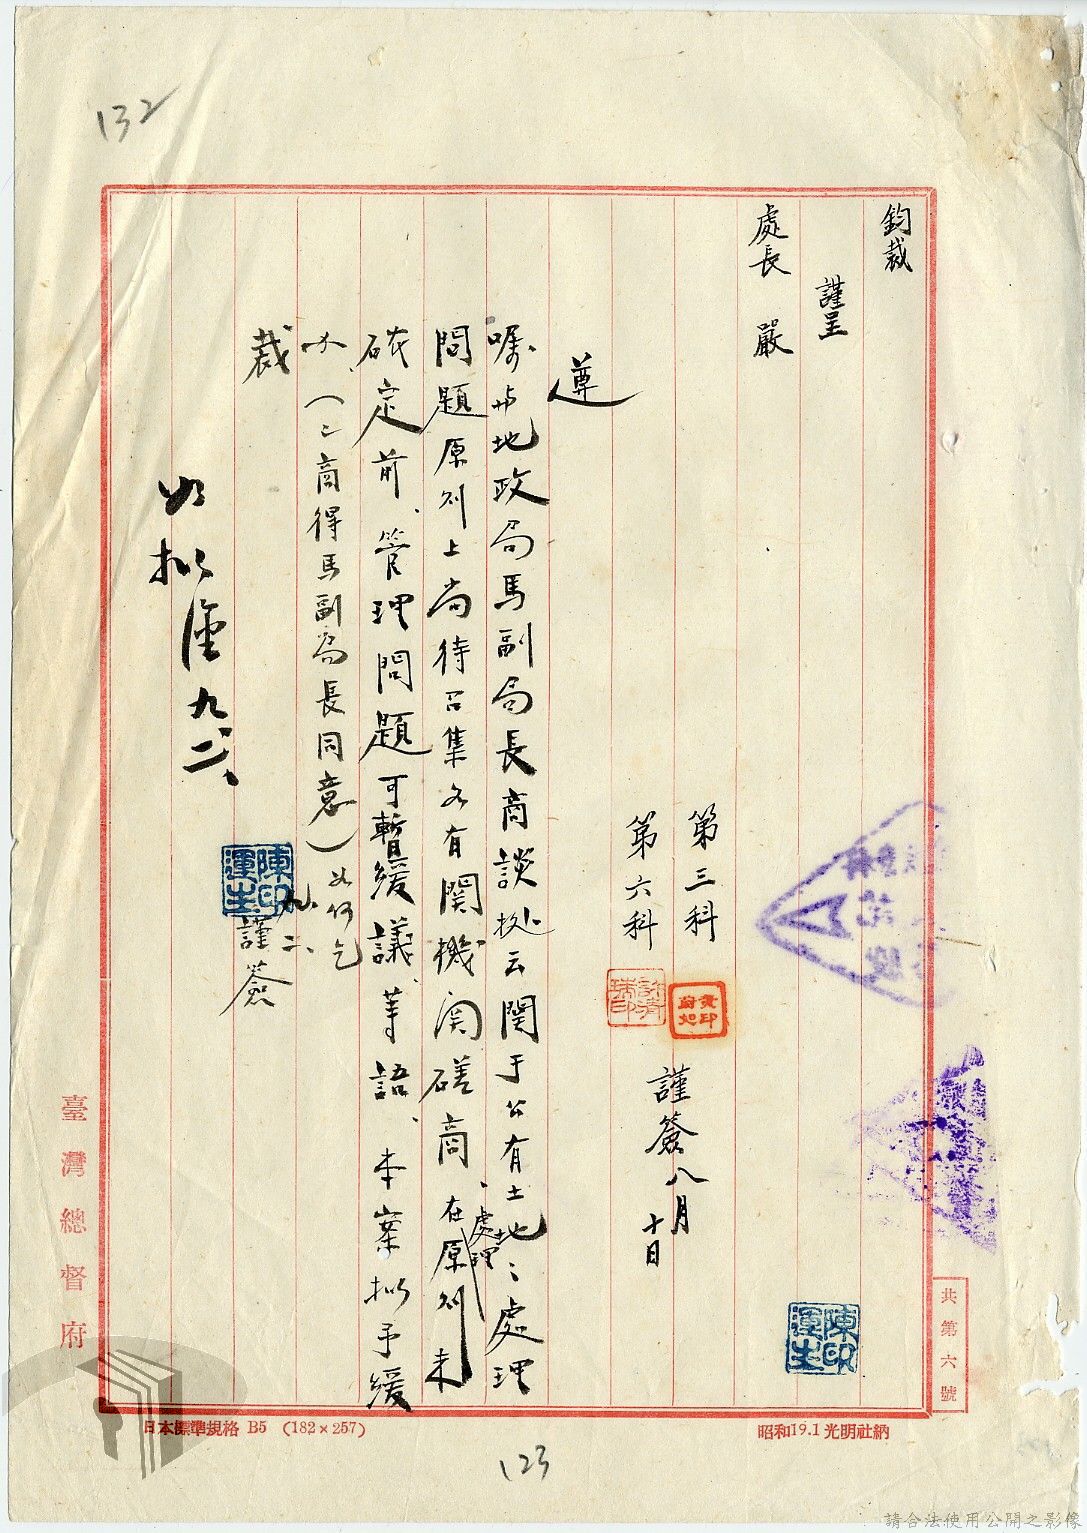 132
鈞裁
謹呈
處長 嚴
第三科
第六科
謹簽八月
十日
遵
囑與地政局馬副局長商談据云関于公有土地之處理
問題原則上尚待召集各有関機関磋商、在處理原則未
確定前、管理問題可暫緩議、等語、本案擬予緩
辦、(已商得馬副局長同意)如何乞
裁
九、二、
謹簽
如擬
九、二、
陳印運生
陳印運生
臺灣總督府
共第六號
日本標準規格 B5 (182×257)
昭和19.1光明社納
123
請合法使用公開之影像